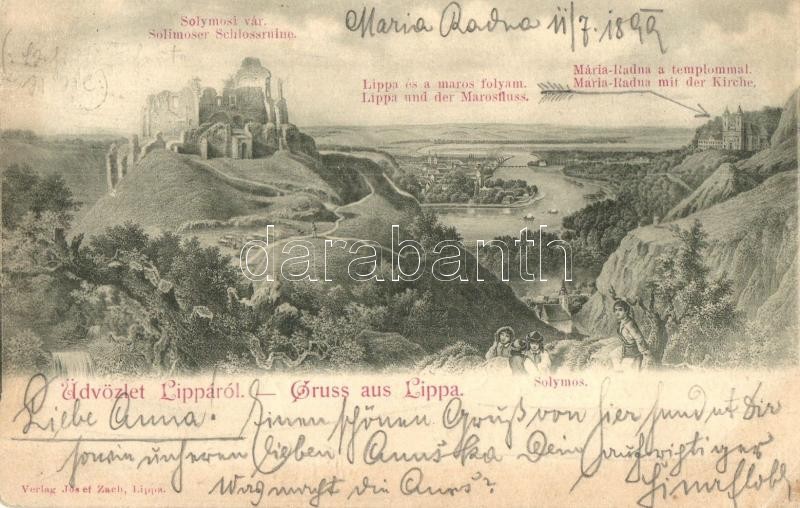 Solymosi vár.
Solimoser Schlossruine.
Maria Radna 11/7. 1899
Lippa és a maros folyam.
Lippa und der Marosfluss.
Mária-Radna a templommal.
Maria-Radna mit der Kirche.
darabanth.com
Üdvözlet Lippáról. — Gruss aus Lippa.
Solymos.
Liebe Anna! Einen schönen Gruß von hier sendet Dir
sowie unseren lieben Dein aufrichtiger
Was macht die
Verlag Josef Zach, Lippa.